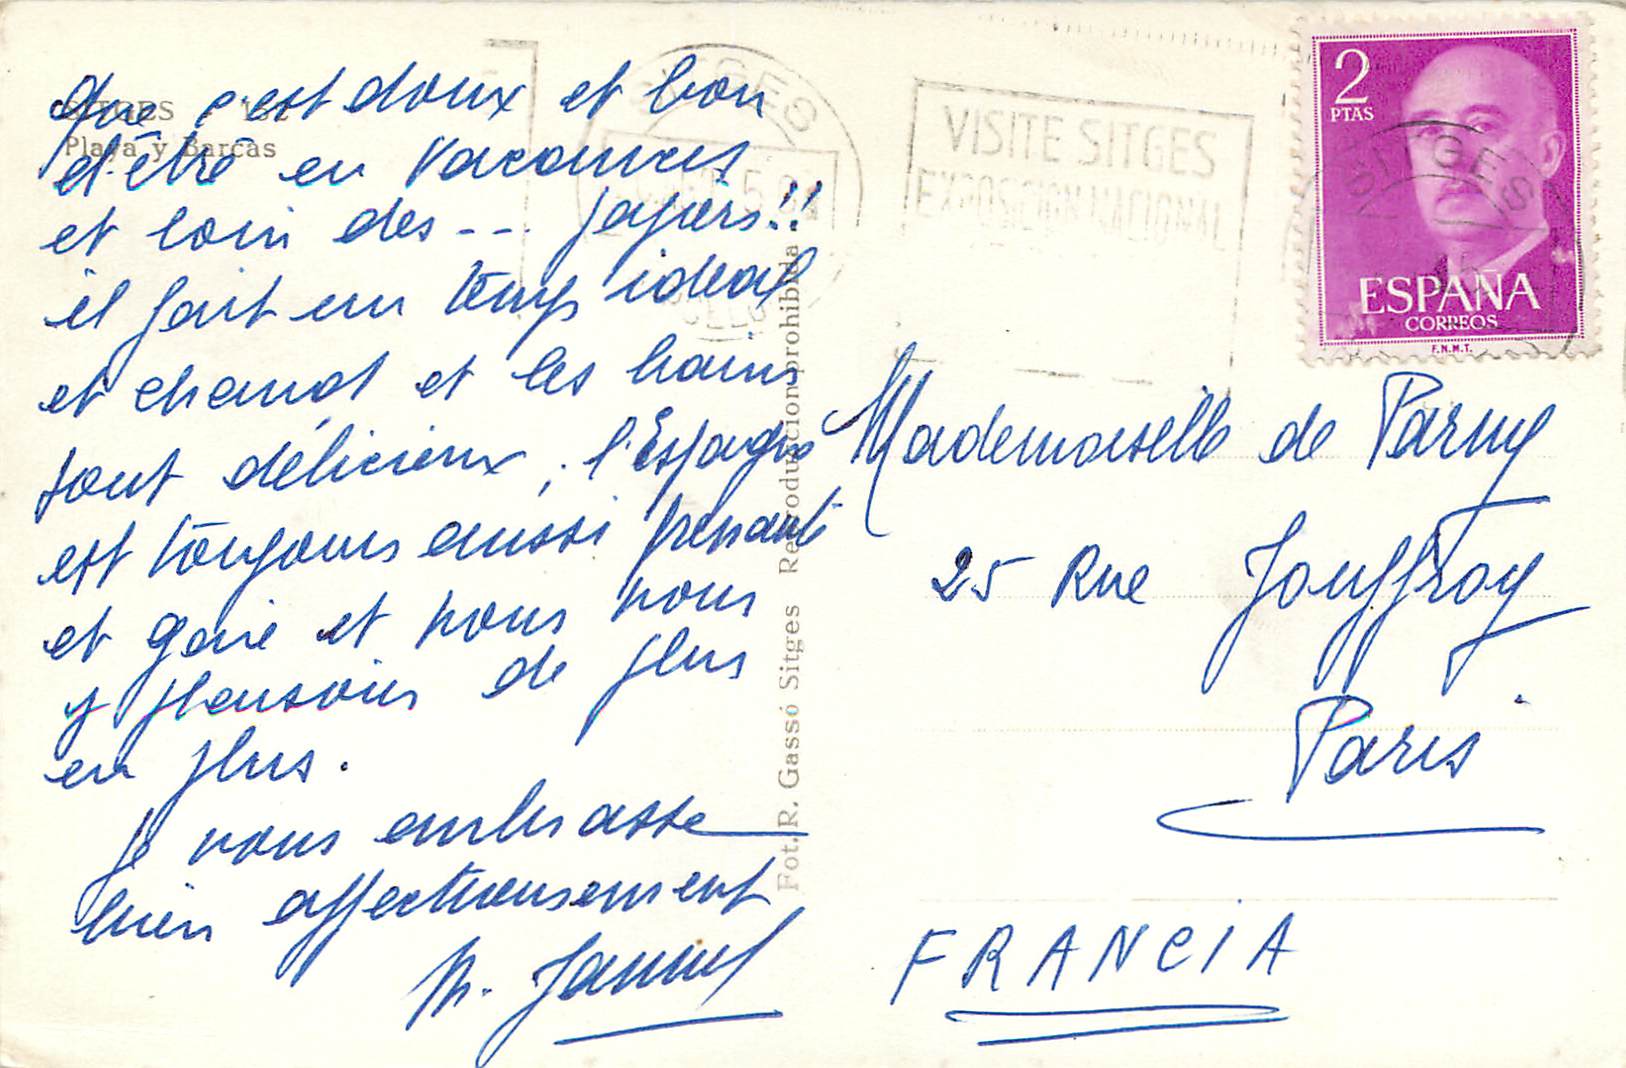 SITGES
Playa y Barcas
Que c'est doux et bon
d'être en vacances
et loin des --- papiers!!
il fait un temps idéal
et chaud et les bains
sont délicieux, l'Espagne
est toujours aussi prenante
et gaie et nous nous
y plaisons de plus
en plus.
Je vous embrasse
bien affectueusement
M.
Fot. R. Gassó Sitges Reproduccion prohibida
SITGES
VISITE SITGES
EXPOSICION NACIONAL
2
PTAS
SITGES
ESPAÑA
CORREOS
F.N.M.T.
Mademoiselle de Parny
25 Rue Jouffroy
Paris
FRANCIA